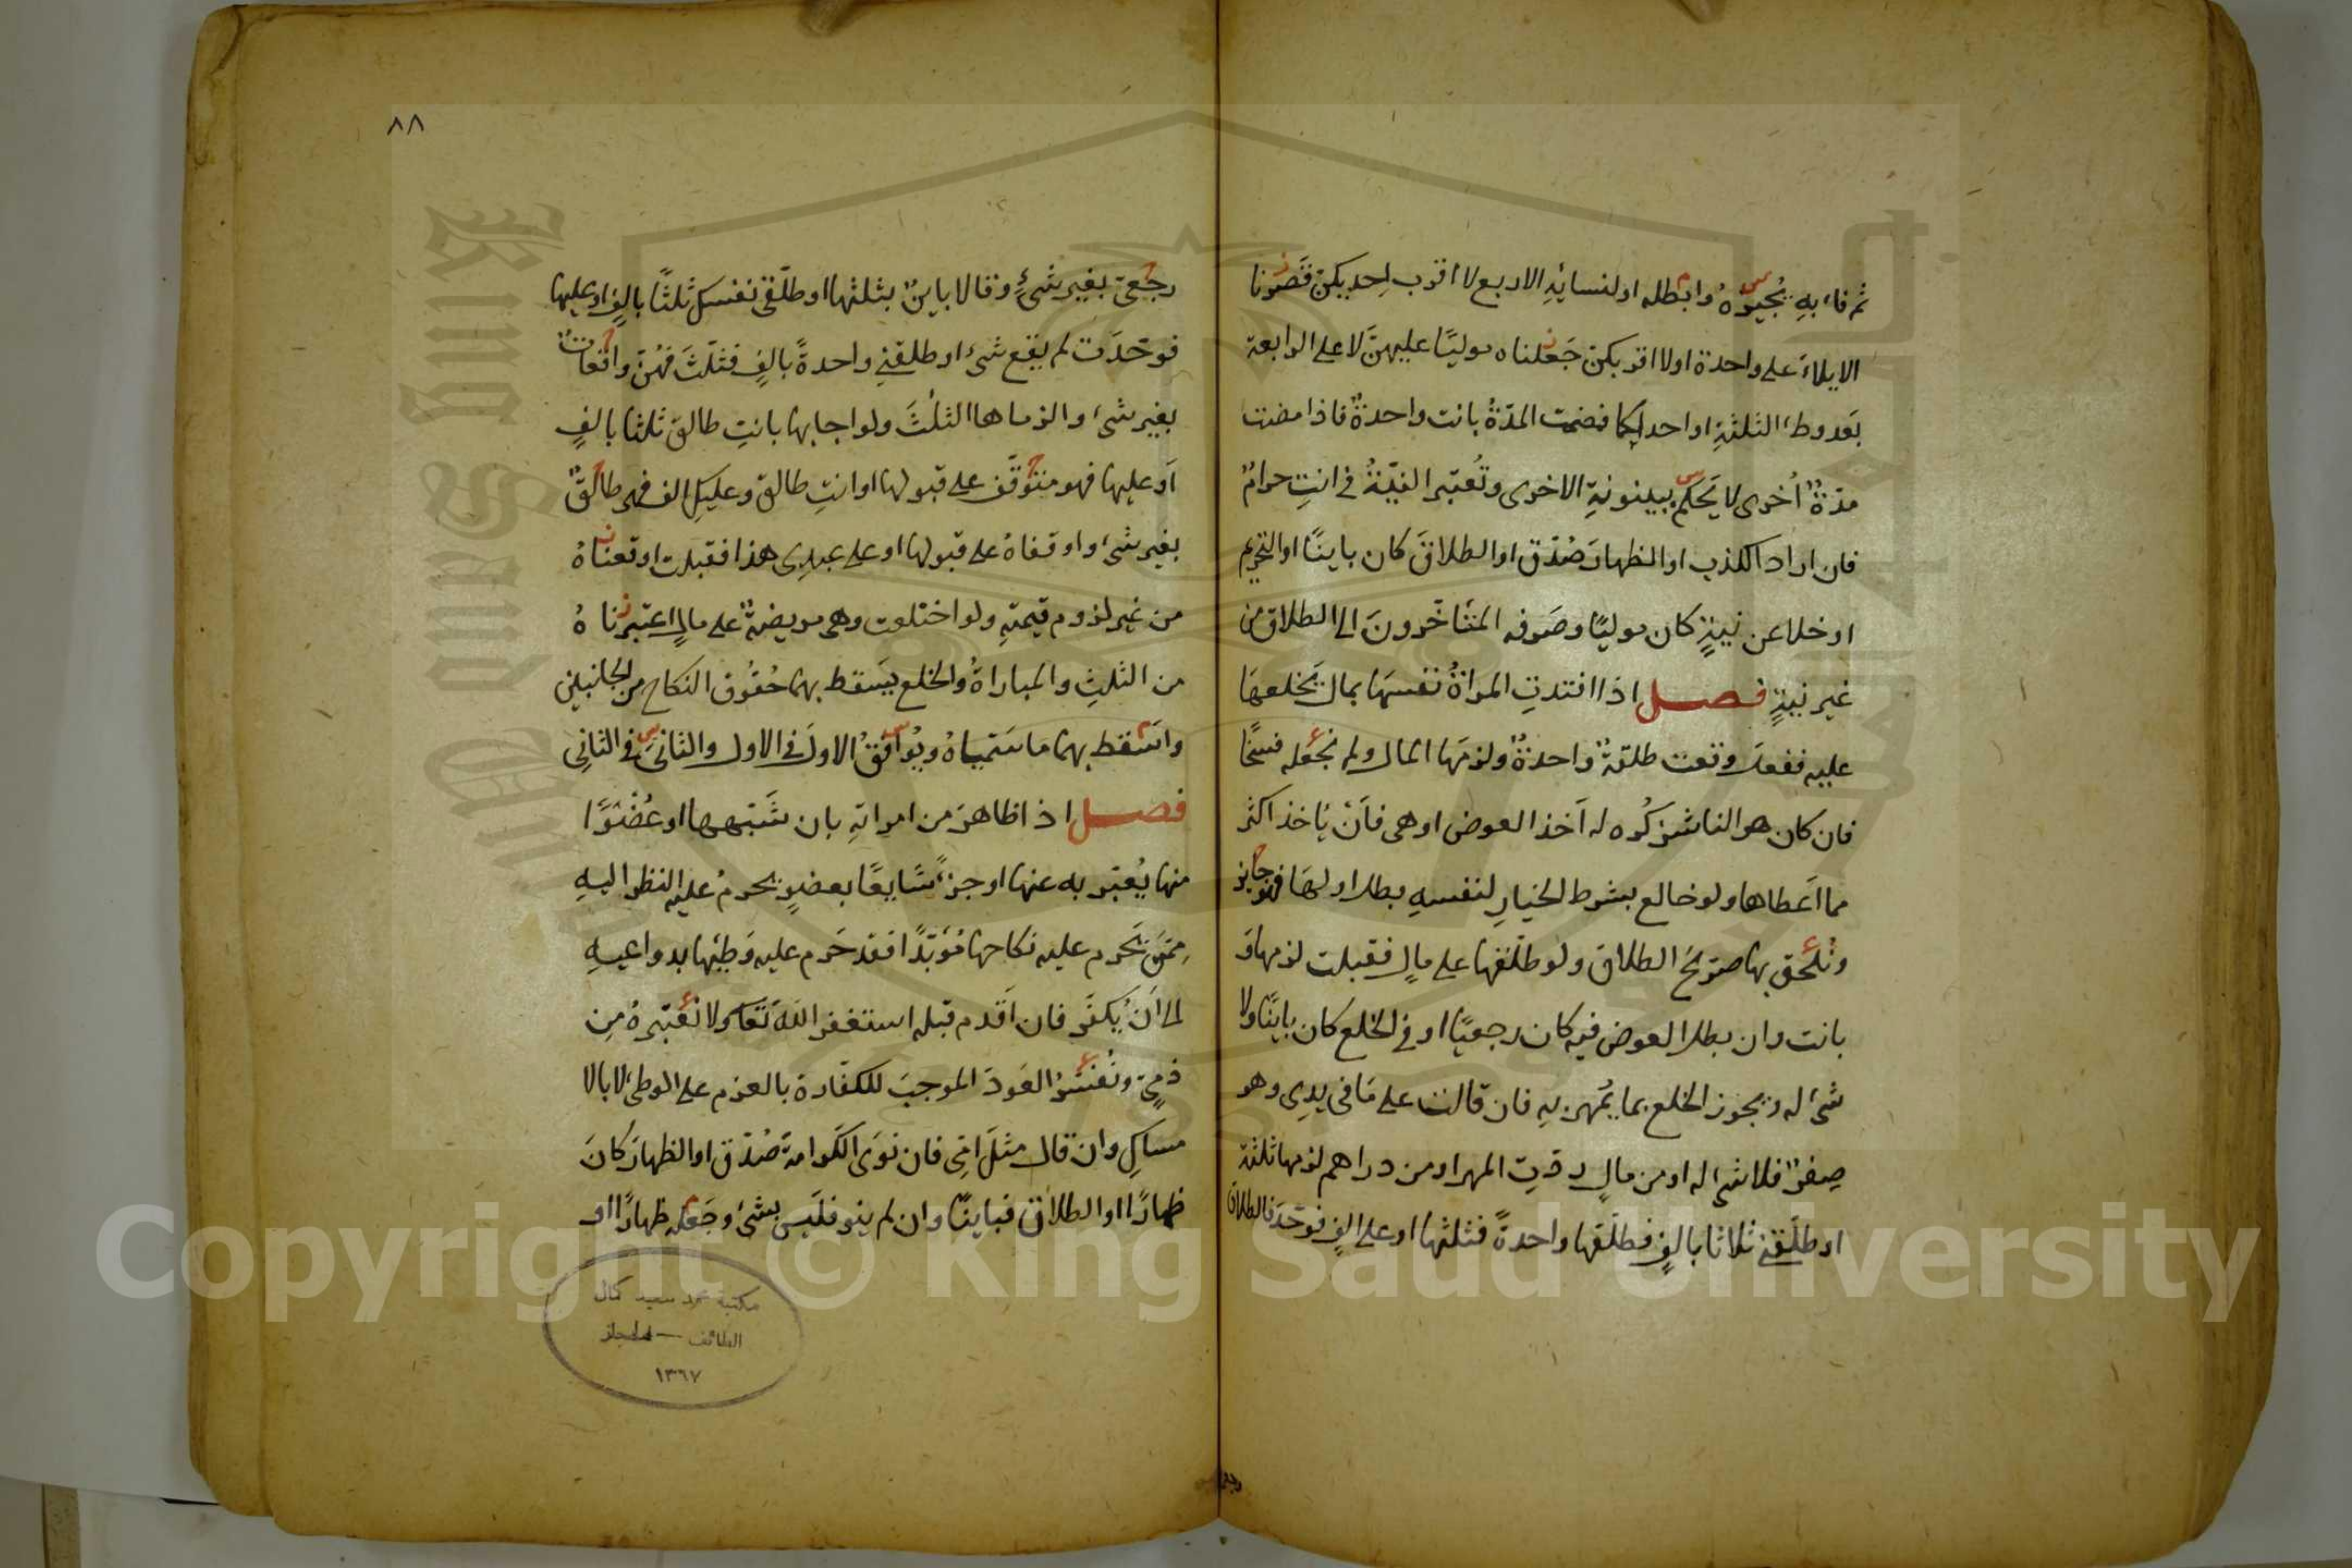 ثم فاء به يُجيزهُ وابطله او لنسائهِ الاربع لا اقرب احديكن قَصَرنا
الايلاءَ على واحدة او لا اقربكن جَعلناه موليًا عليهنَّ لا على الرابعة
بَعد وطئ الثلثةِ او احداكما فمضت المدّةُ بانت واحدةٌ فاذا مضت
مدّةٌ اُخرى لا يَحكم ببينونةِ الاخرى وتُعتبر النيّةُ في انتِ حرامٌ
فان اراد الكذب او الظهارَ صُدّق او الطلاقَ كان باينًا او التحريم
او خلا عن نيةٍ كان موليًا وصَرفه المتَأخّرونَ الى الطلاق من
غير نيةٍ فصل اذا افتدتِ المراةُ نفسهَا بمال يَخلعهَا
عليه ففعل وقعت طلقةٌ واحدةٌ ولزمَها المال ولم نجعَله فسخًا
فان كان هو الناشز كُره له اَخذ العوض او هى فاَنْ يَاخذ اكثر
مما اَعطاها ولو خالع بشرط الخيارِ لنفسهِ بطل او لهَا فهو جايز
ونُلحق بها صريحَ الطلاق ولو طلّقها على مالٍ فقبلت لزمها وَ
بانت وان بطل العوض فيه كان رجعيًا او في الخلع كان باينًا ولا
شئ له ويجوز الخلع بما يُمهر به فان قالت على مَا فى يدِى وهو
صِفرٌ فلا شئ له او من مالٍ ردتِ المهر او من دراهم لزمها ثلثة
او طلّقني ثلاثا بالفٍ فطلّقها واحدةً فثلثها او على الفٍ فوحّدَ فالطلاق
٨٨
رجعى بغير شئٍ وقالا باينٌ بثلثها او طلّقى نفسكِ ثلثًا بالفٍ او عليها
فوحّدَت لم يقع شئ او طلقني واحدةً بالفٍ فثلّثَ فهُنّ واقعاتٌ
بغير شئ والزماها الثلُثَ ولو اجابها بانتِ طالق ثلثا بالفٍ
اَو عليها فهو متوقّف على قبولها او انتِ طالق وعليكِ الف فهى طالقٌ
بغير شئ واوقفاهُ على قبولها او على عبدِى هذا فقبلت اوقعناهُ
من غير لزوم قيمتهِ ولو اختلعت وهى مريضةٌ على مالٍ اعتبرناهُ
من الثلثِ والمباراةُ والخلع يَسقط بهما حُقُوق النكاح من الجانبين
واسَقط بهما مَا سَمّياهُ ويُوافقُ الاولَ في الاول والثانىَ في الثانِى
فصل اذا ظاهرَ من امراتهِ بان شَبّهها او عُضْوًا
منها يُعبّر به عنها او جزءًا شَايعًا بعضوٍ يحرمُ عليه النظر اليهِ
مِمّن يَحرم عليه نكاحها مُؤبّدًا فقد حَرم عليه وَطئها بدواعيهِ
الى اَن يُكفّر فان اَقدم قبله استغفر اللهَ تَعَالى ولا نعتبرهُ مِن
ذمىّ ونُفسّرُ العَودَ الموجبَ للكفّارة بالعزم على الوطئ لا بالا
مساكِ وان قال مثلَ امّى فان نَوَى الكَرامةَ صُدّق او الظهارَ كانَ
ظهارًا او الطلاقَ فباينًا وان لم ينو فلَيس بشئ وجَعله ظهارًا او
مكتبة محمد سعيد كمال
الطائف - الحجاز
١٣٦٧
Copyright © King Saud University